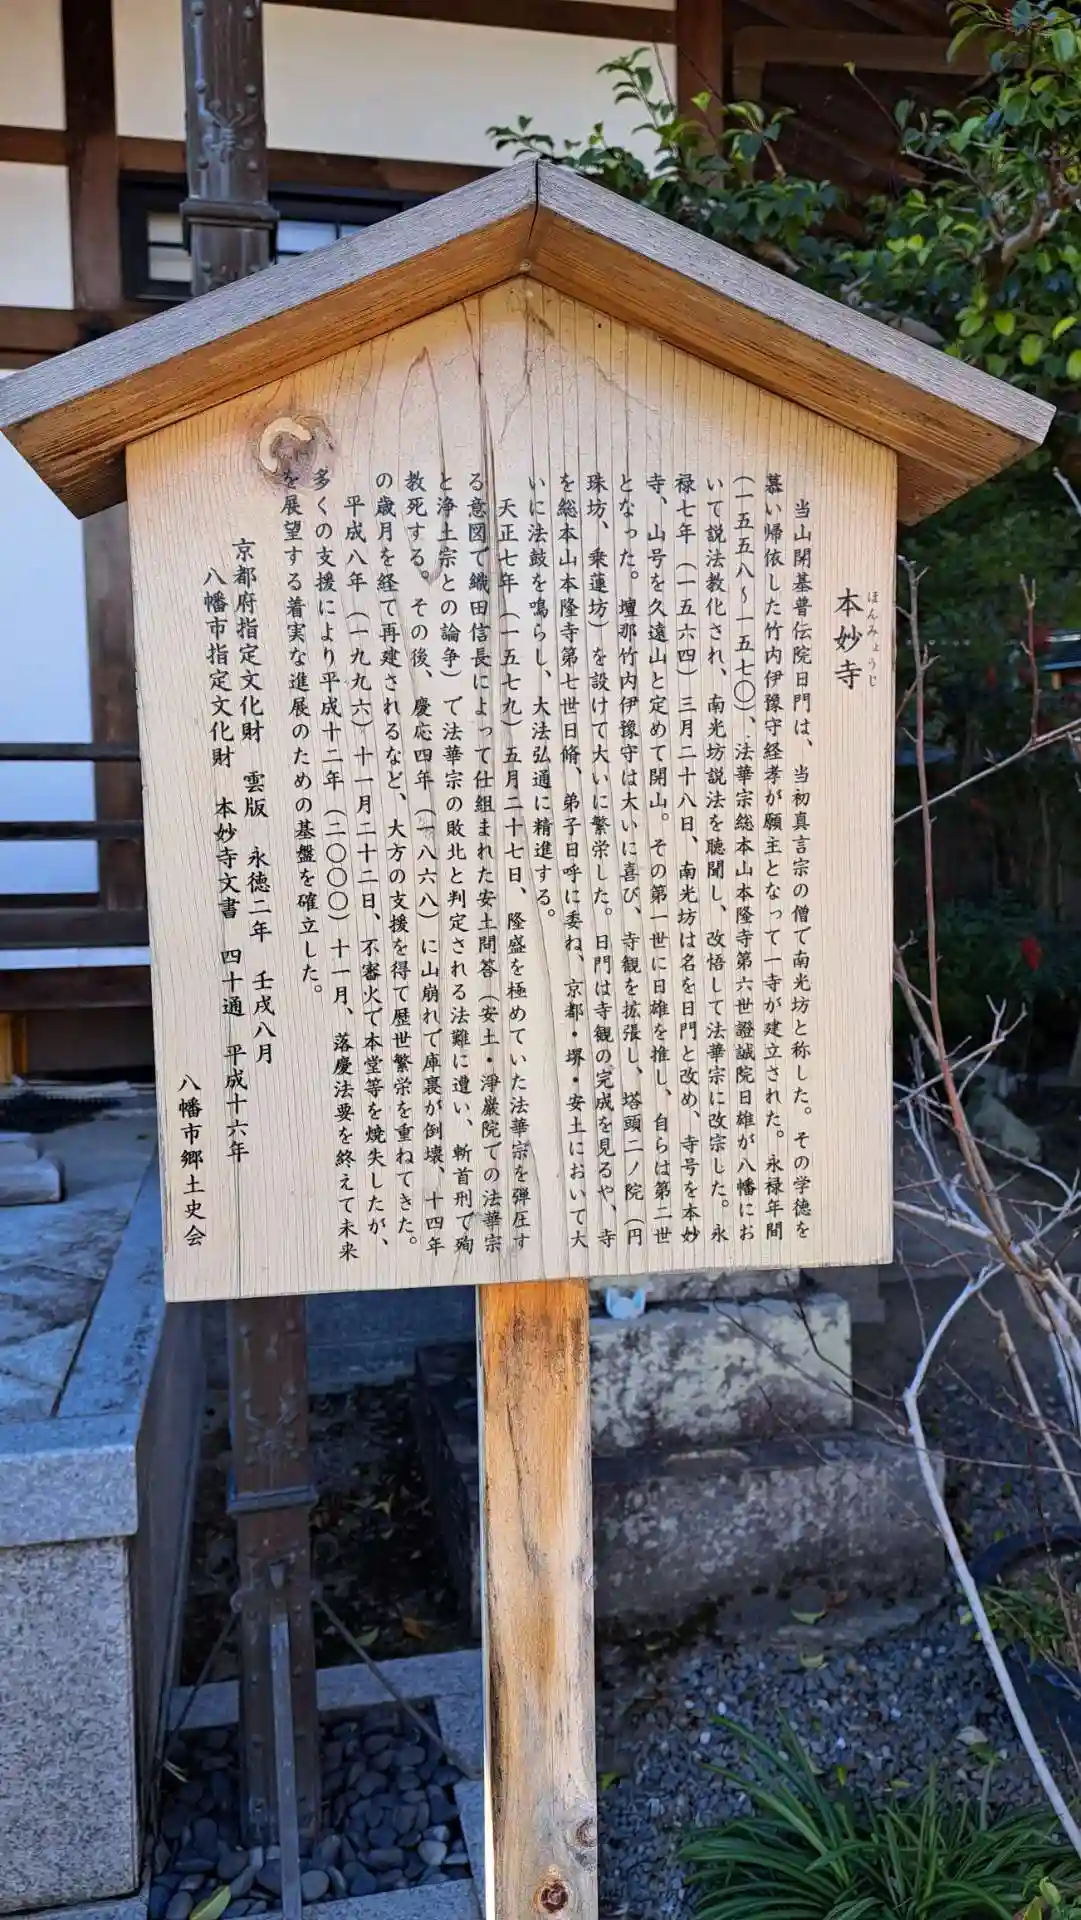 ほんみょうじ
本妙寺
当山開基普伝院日門は、当初真言宗の僧で南光坊と称した。その学徳を
慕い帰依した竹内伊豫守経孝が願主となって一寺が建立された。永禄年間
（一五五八～一五七〇）、法華宗総本山本隆寺第六世證誠院日雄が八幡にお
いて説法教化され、南光坊説法を聴聞し、改悟して法華宗に改宗した。永
禄七年（一五六四）三月二十八日、南光坊は名を日門と改め、寺号を本妙
寺、山号を久遠山と定めて開山。その第一世に日雄を推し、自らは第二世
となった。壇那竹内伊豫守は大いに喜び、寺観を拡張し、塔頭二ノ院（円
珠坊、乗蓮坊）を設けて大いに繁栄した。日門は寺観の完成を見るや、寺
を総本山本隆寺第七世日脩、弟子日呼に委ね、京都・堺・安土において大
いに法鼓を鳴らし、大法弘通に精進する。
天正七年（一五七九）五月二十七日、隆盛を極めていた法華宗を弾圧す
る意図で織田信長によって仕組まれた安土問答（安土・浄厳院での法華宗
と浄土宗との論争）で法華宗の敗北と判定される法難に遭い、斬首刑で殉
教死する。その後、慶応四年（一八六八）に山崩れで庫裏が倒壊、十四年
の歳月を経て再建されるなど、大方の支援を得て歴世繁栄を重ねてきた。
平成八年（一九九六）十一月二十二日、不審火で本堂等を焼失したが、
多くの支援により平成十二年（二〇〇〇）十一月、落慶法要を終えて未来
を展望する着実な進展のための基盤を確立した。
京都府指定文化財　雲版　永徳二年　壬戌八月
八幡市指定文化財　本妙寺文書　四十通　平成十六年
八幡市郷土史会